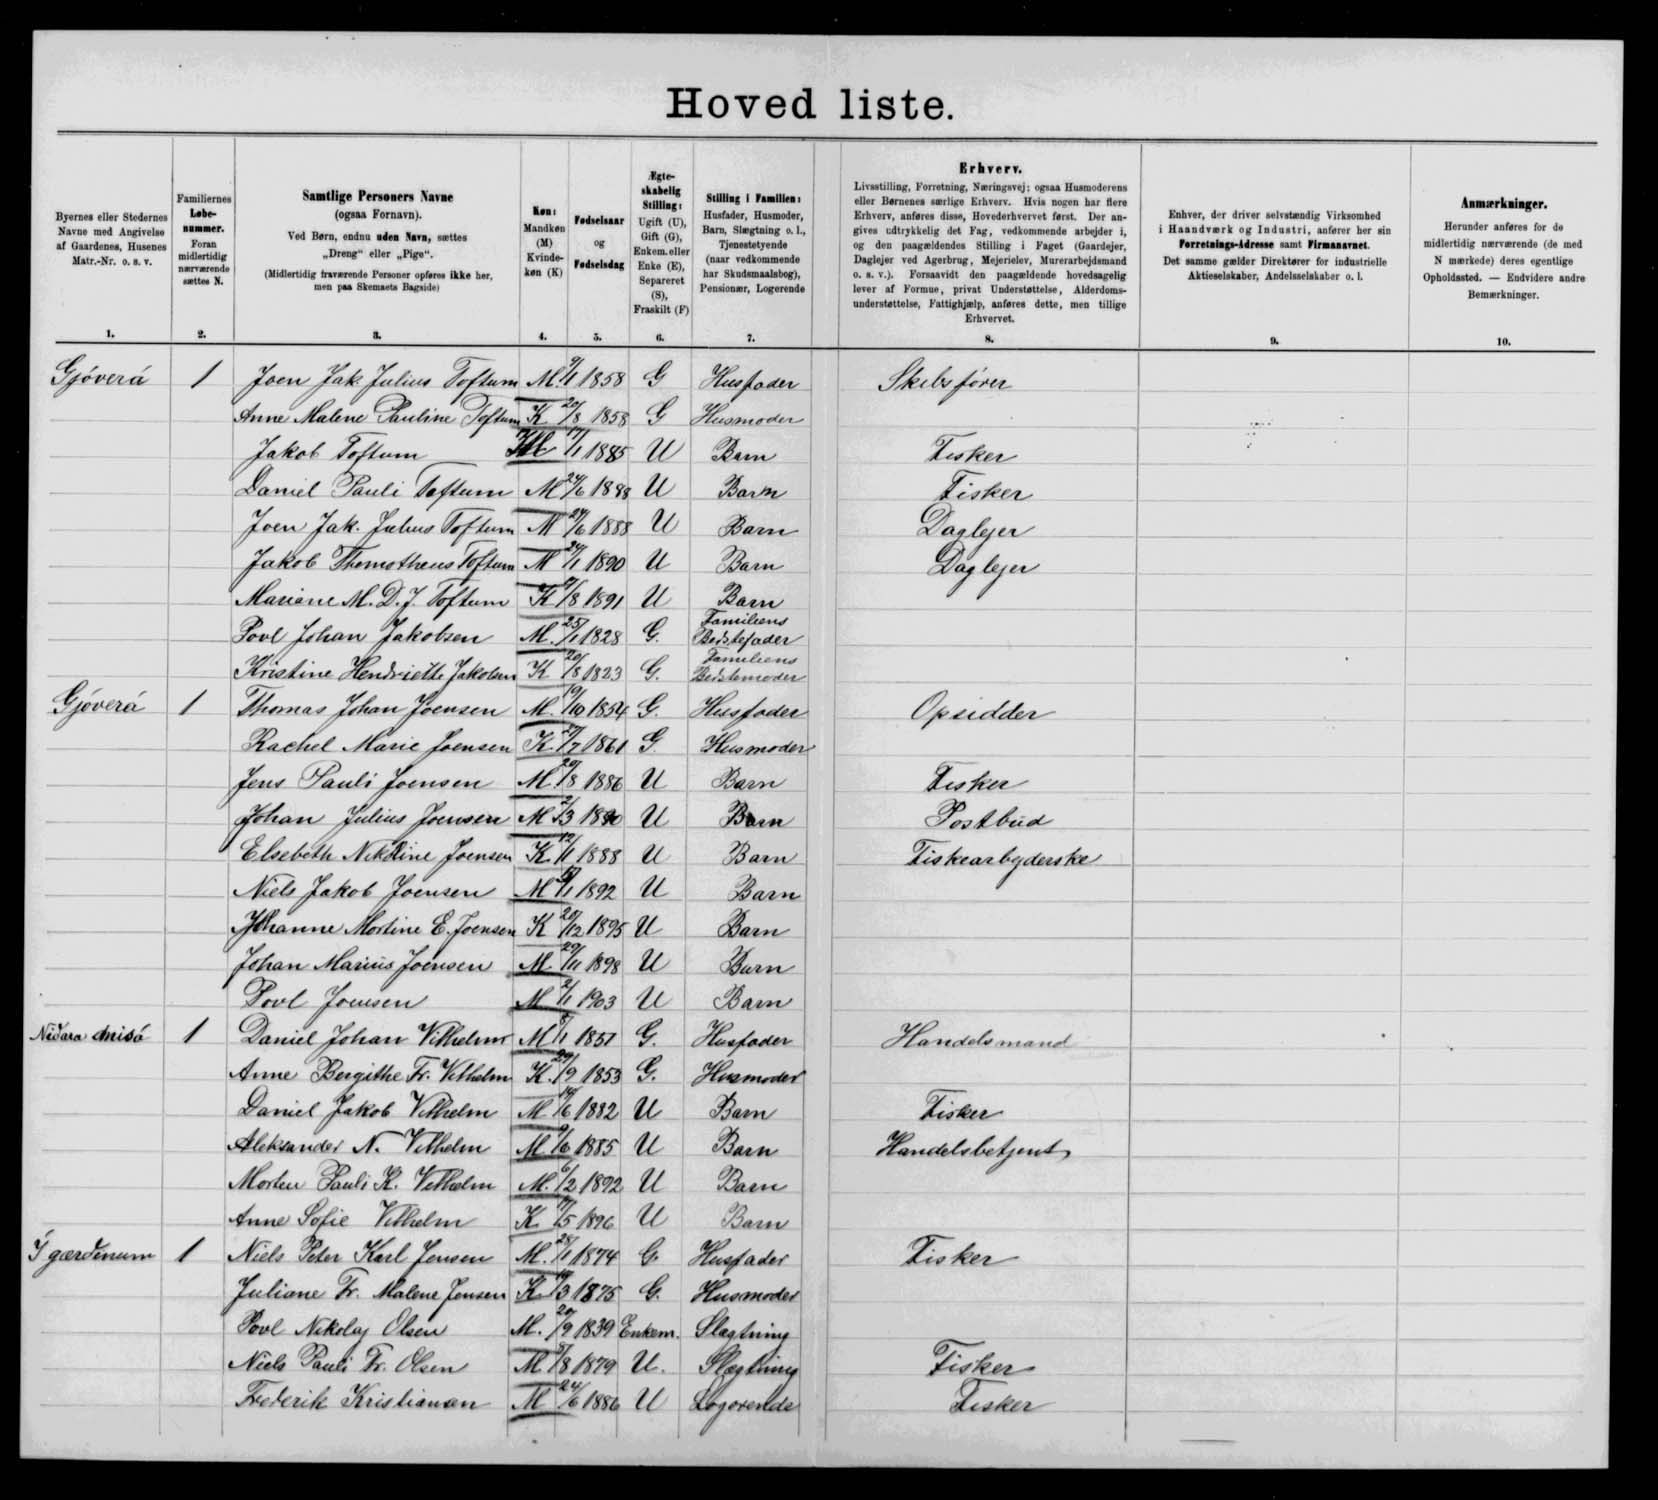 Hoved liste.
Byernes eller Stedernes Navne med Angivelse af Gaardenes, Husenes Matr.-Nr. o. s. v.
1.
Familiernes Løbenummer. Foran midlertidig nærværende sættes N.
2.
Samtlige Personers Navne
(ogsaa Fornavn).
Ved Børn, endnu uden Navn, sættes
„Dreng“ eller „Pige“.
(Midlertidig fraværende Personer opføres ikke her,
men paa Skemaets Bagside)
3.
Køn:
Mandkøn (M) Kvindekøn (K)
4.
Fødselsaar
og
Fødselsdag
5.
Ægteskabelig Stilling:
Ugift (U), Gift (G), Enkem. eller Enke (E), Separeret (S), Fraskilt (F)
6.
Stilling i Familien:
Husfader, Husmoder, Barn, Slægtning o. l., Tjenestetyende (naar vedkommende har Skudsmaalsbog), Pensionær, Logerende
7.
Erhverv.
Livsstilling, Forretning, Næringsvej; ogsaa Husmoderens
eller Børnenes særlige Erhverv. Hvis nogen har flere
Erhverv, anføres disse, Hovederhvervet først. Der an-
gives udtrykkelig det Fag, vedkommende arbejder i,
og den paagældendes Stilling i Faget (Gaardejer,
Daglejer ved Agerbrug, Mejerielev, Murerarbejdsmand
o. s. v.). Forsaavidt den paagældende hovedsagelig
lever af Formue, privat Understøttelse, Alderdoms-
understøttelse, Fattighjælp, anføres dette, men tillige
Erhvervet.
8.
Enhver, der driver selvstændig Virksomhed
i Haandværk og Industri, anfører her sin
Forretnings-Adresse samt Firmanavnet.
Det samme gælder Direktører for industrielle
Aktieselskaber, Andelsselskaber o. l.
9.
Anmærkninger.
Herunder anføres for de
midlertidig nærværende (de med
N mærkede) deres egentlige
Opholdssted. — Endvidere andre
Bemærkninger.
10.
Gjóverá 1 Joen Jak. Julius Toftum M. 9/11 1858 G Husfader Skibsfører
Anne Malene Pauline Toftum K 20/8 1858 G Husmoder
Jakob Toftum M 17/1 1885 U Barn Fisker
Daniel Pauli Toftum M 24/6 1888 U Barn Fisker
Joen Jak. Julius Toftum M 24/6 1888 U Barn Daglejer
Jakob Thomotheus Toftum M 24/1 1890 U Barn Daglejer
Mariane M. D. J. Toftum K 9/8 1891 U Barn
Povl Johan Jakobsen M. 25/1 1828 G. Familiens Bedstefader
Kristine Henriette Jakobsen K 20/8 1823 G. Familiens Bedstemoder
Gjóverá 1 Thomas Johan Joensen M. 19/10 1854 G. Husfader Opsidder
Rachel Marie Joensen K 27/7 1861 G. Husmoder
Jens Pauli Joensen M. 20/8 1886 U Barn Fisker
Johan Julius Joensen M 2/3 1890 U Barn Postbud
Elsebeth Nikoline Joensen K 12/11 1888 U Barn Fiskearbejderske
Niels Jakob Joensen M 1892 U Barn
Johanne Mortine E. Joensen K 20/12 1895 U Barn
Johan Marius Joensen M. 29/11 1898 U Barn
Povl Joensen M 2/1 1903 U Barn
1 Daniel Johan Vilhelm M 8/11 1851 G. Husfader Handelsmand
Anne Bergithe Fr. Vilhelm K. 29/9 1853 G. Husmoder
Daniel Jakob Vilhelm M 14/6 1882 U Barn Fisker
Aleksander N. Vilhelm M 9/6 1885 U Barn Handelsbetjent
Morten Pauli K. Vilhelm M. 6/2 1892 U Barn
Anne Sofie Vilhelm K 17/5 1896 U Barn
Í gærðinum 1 Niels Peter Karl Jensen M. 28/1 1874 G. Husfader Fisker
Juliane Fr. Malene Jensen K 19/3 1875 G. Husmoder
Povl Nikolaj Olsen M. 20/9 1839 Enkem. Slægtning
Niels Pauli Fr. Olsen M 5/8 1879 U. Slægtning Fisker
Frederik Kristiansen M 24/6 1886 U Logerende Fisker